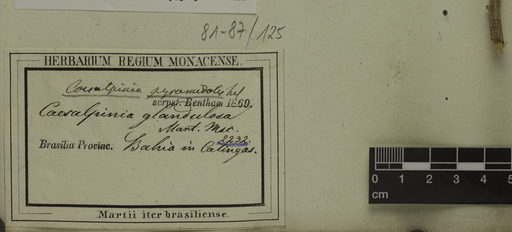 81-87/125
HERBARIUM REGIUM MONACENSE.
Caesalpinia pyramidalis
scrpst. Bentham 1869.
Caesalpinia glandulosa
Mart. Msc.
2232.
Brasilia Provinc. Bahia in Catingas.
Martii iter brasiliense.
0 1 2 3 4 5
cm